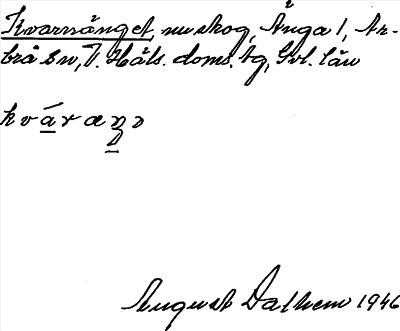 Kvarnänget, nu skog, Änga 1, Ar-
brå sn, V. Häls. doms. tg, Gvl. län
kváraŋə
August Dalhem 1946